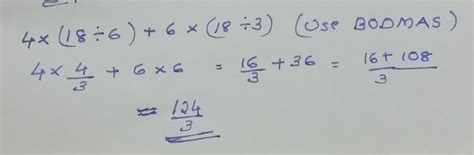 4×(18÷6) + 6×(18÷3) (Use BODMAS)
4× 4/3 + 6×6 = 16/3 + 36 = 16+108/3
= 124/3